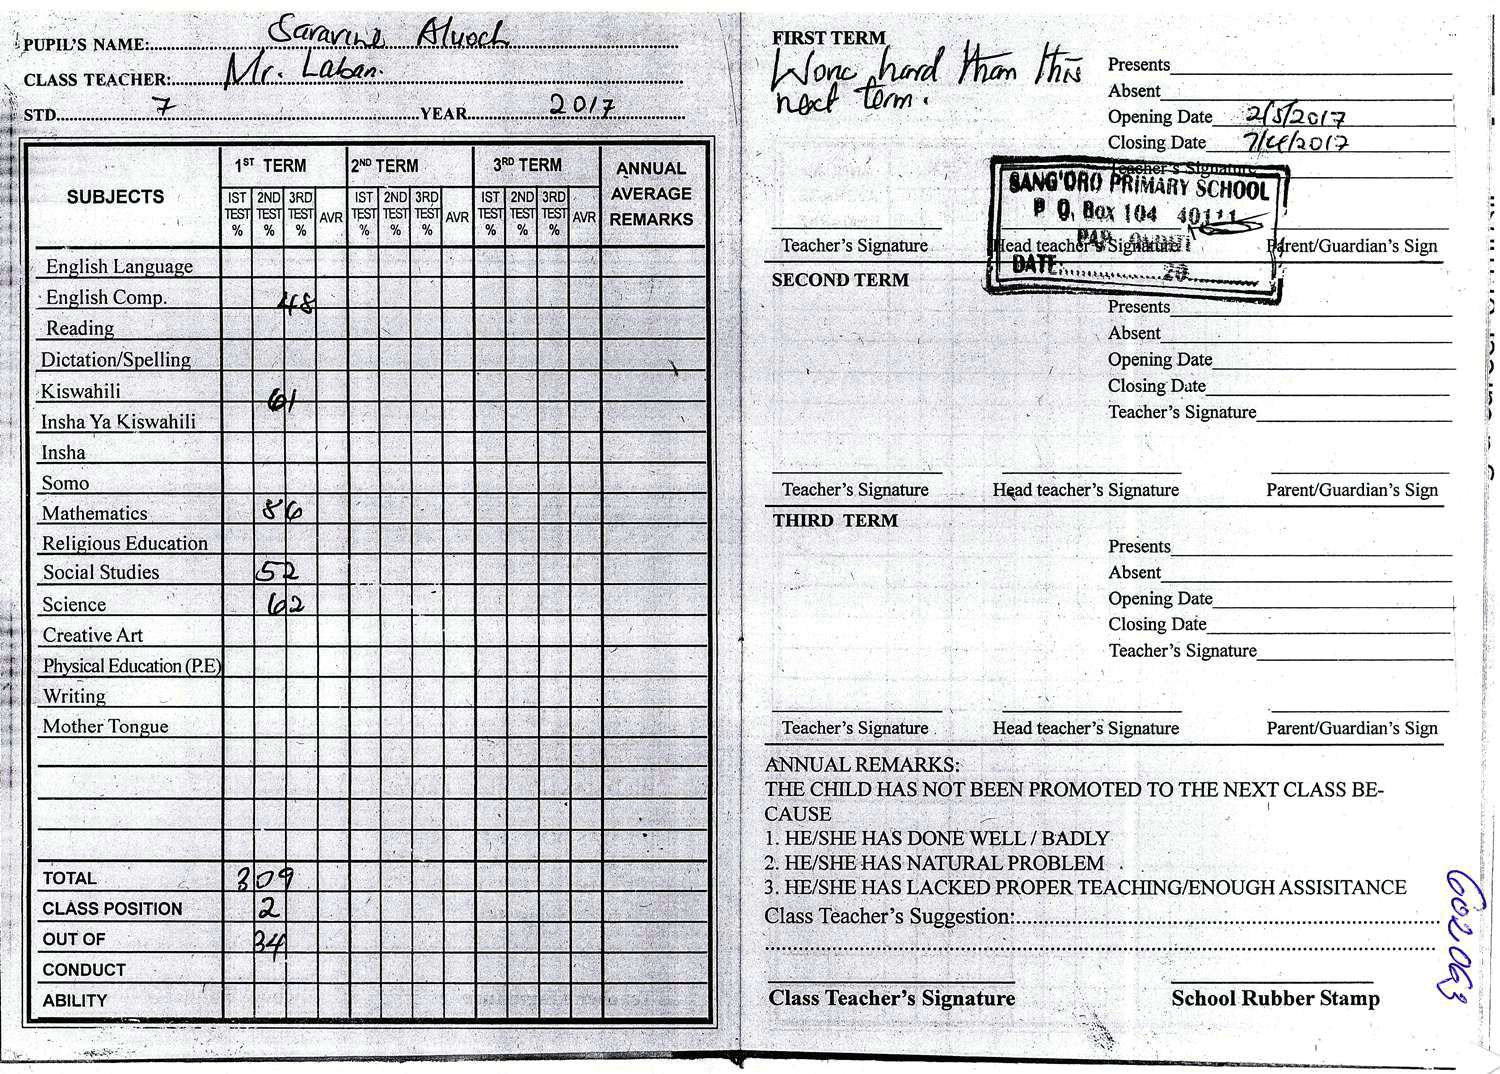 PUPIL'S NAME: Sararine Aluoch
CLASS TEACHER: Mr. Laban.
STD. 7 YEAR 2017
SUBJECTS 1ST TERM 2ND TERM 3RD TERM ANNUAL AVERAGE REMARKS
IST TEST % 2ND TEST % 3RD TEST % AVR IST TEST % 2ND TEST % 3RD TEST % AVR IST TEST % 2ND TEST % 3RD TEST % AVR
English Language
English Comp. 48
Reading
Dictation/Spelling
Kiswahili 61
Insha Ya Kiswahili
Insha
Somo
Mathematics 86
Religious Education
Social Studies 52
Science 62
Creative Art
Physical Education (P.E)
Writing
Mother Tongue
TOTAL 309
CLASS POSITION 2
OUT OF 34
CONDUCT
ABILITY
FIRST TERM
Worc hard than this
next term.
Presents
Absent
Opening Date 2/5/2017
Closing Date 7/4/2017
Teacher's Signature
SANG'ORO PRIMARY SCHOOL
P O. Box 104 40111
DATE: 20
Teacher's Signature Head teacher's Signature Parent/Guardian's Sign
SECOND TERM
Presents
Absent
Opening Date
Closing Date
Teacher's Signature
Teacher's Signature Head teacher's Signature Parent/Guardian's Sign
THIRD TERM
Presents
Absent
Opening Date
Closing Date
Teacher's Signature
Teacher's Signature Head teacher's Signature Parent/Guardian's Sign
ANNUAL REMARKS:
THE CHILD HAS NOT BEEN PROMOTED TO THE NEXT CLASS BE-
CAUSE
1. HE/SHE HAS DONE WELL / BADLY
2. HE/SHE HAS NATURAL PROBLEM
3. HE/SHE HAS LACKED PROPER TEACHING/ENOUGH ASSISITANCE
Class Teacher's Suggestion:
Class Teacher's Signature School Rubber Stamp
602063